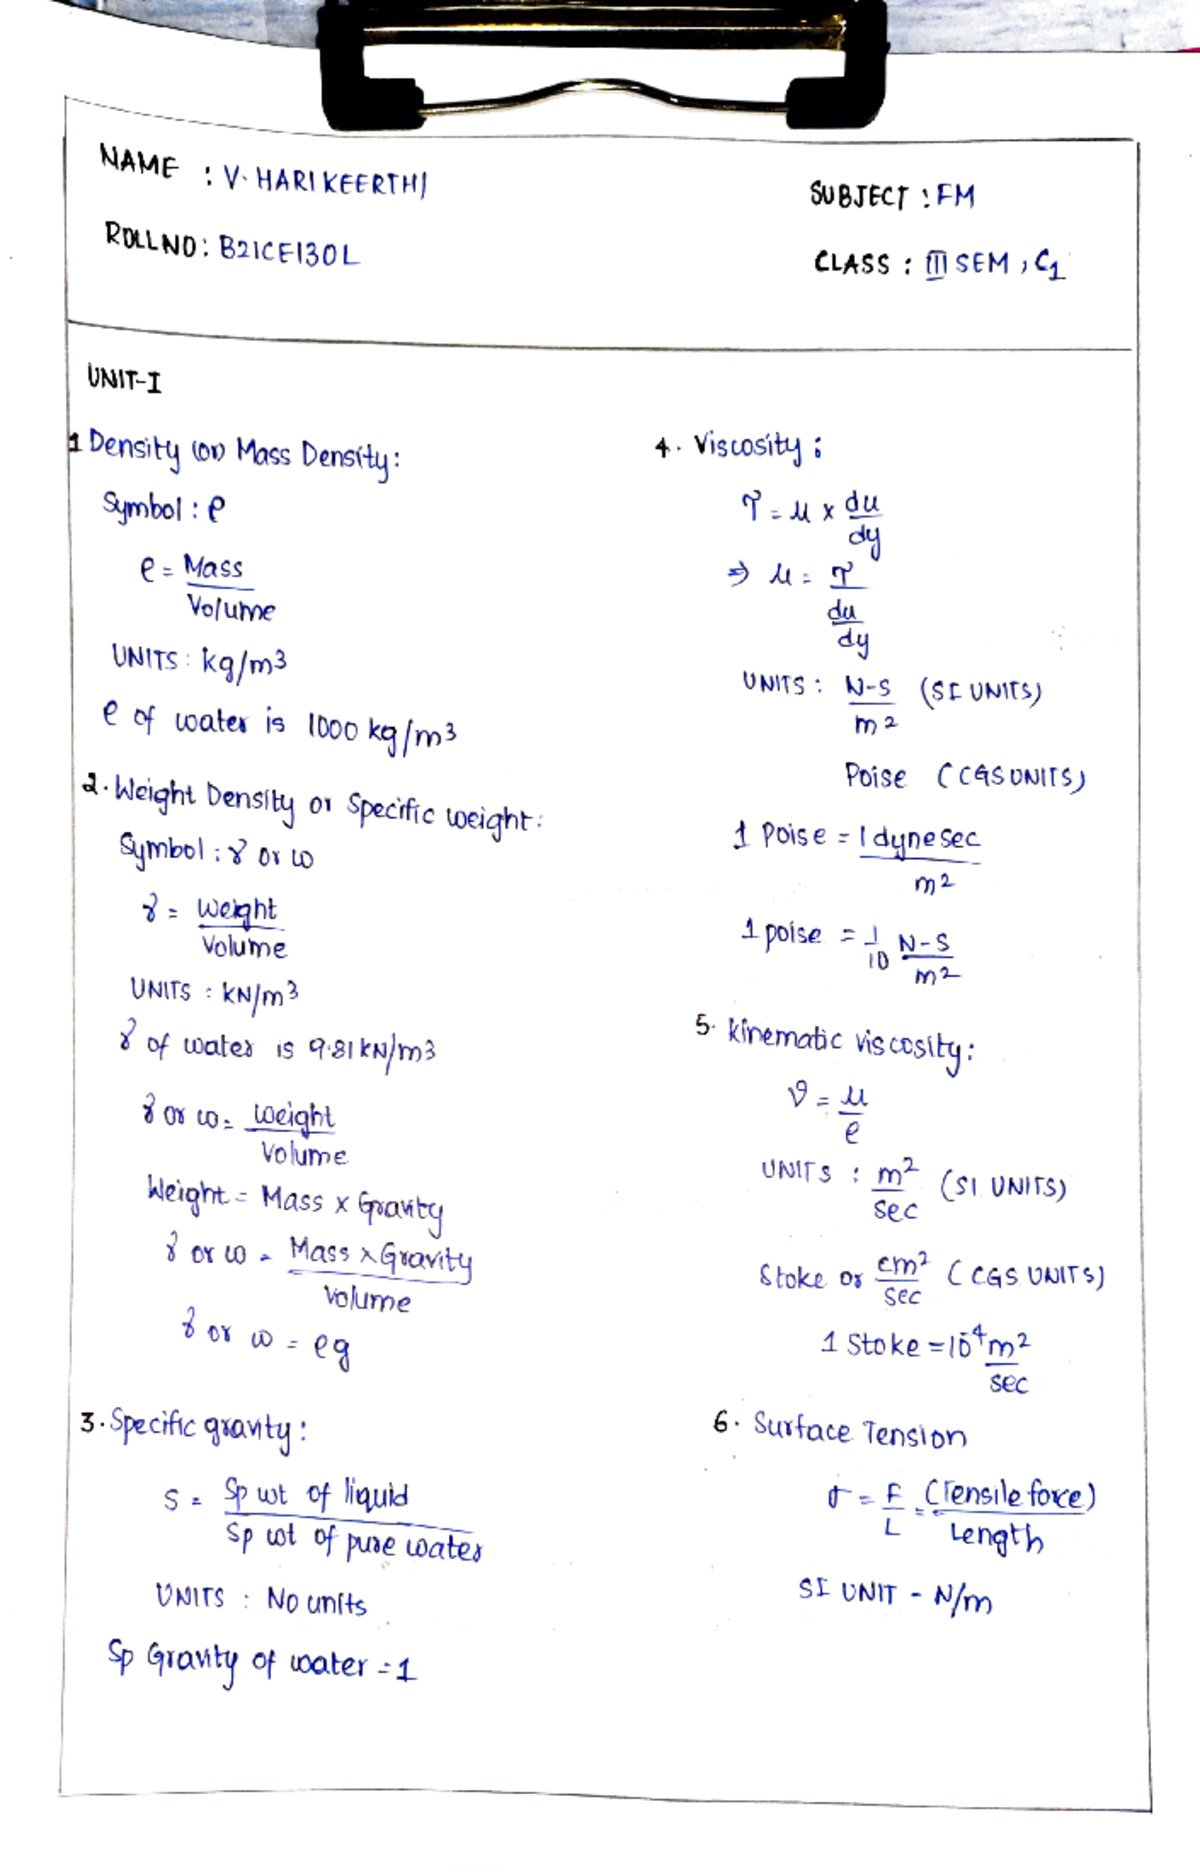 NAME : V. HARIKEERTHI
SUBJECT : FM
ROLLNO: B21CE130L
CLASS : III SEM, C1
UNIT-I
1 Density (or) Mass Density:
Symbol : ρ
ρ = Mass
Volume
UNITS: kg/m3
ρ of water is 1000 kg/m3
2. Weight Density or Specific weight:
Symbol : γ or ω
γ = Weight
Volume
UNITS : kN/m3
γ of water is 9.81 kN/m3
γ or ω = weight
Volume
Weight = Mass x Gravity
γ or ω = Mass x Gravity
Volume
γ or ω = ρg
3. Specific gravity:
S = Sp wt of liquid
Sp wt of pure water
UNITS : No units
Sp Gravity of water = 1
4. Viscosity:
τ = μ x du
dy
⇒ μ = τ
du
dy
UNITS : N-S (SI UNITS)
m2
Poise (CGS UNITS)
1 Poise = 1 dyne sec
m2
1 poise = 1 N-S
10 m2
5. Kinematic viscosity:
ϑ = μ
ρ
UNITS : m2 (SI UNITS)
sec
Stoke or cm2 (CGS UNITS)
sec
1 Stoke = 10-4 m2
sec
6. Surface Tension
σ = F = (Tensile force)
L Length
SI UNIT - N/m